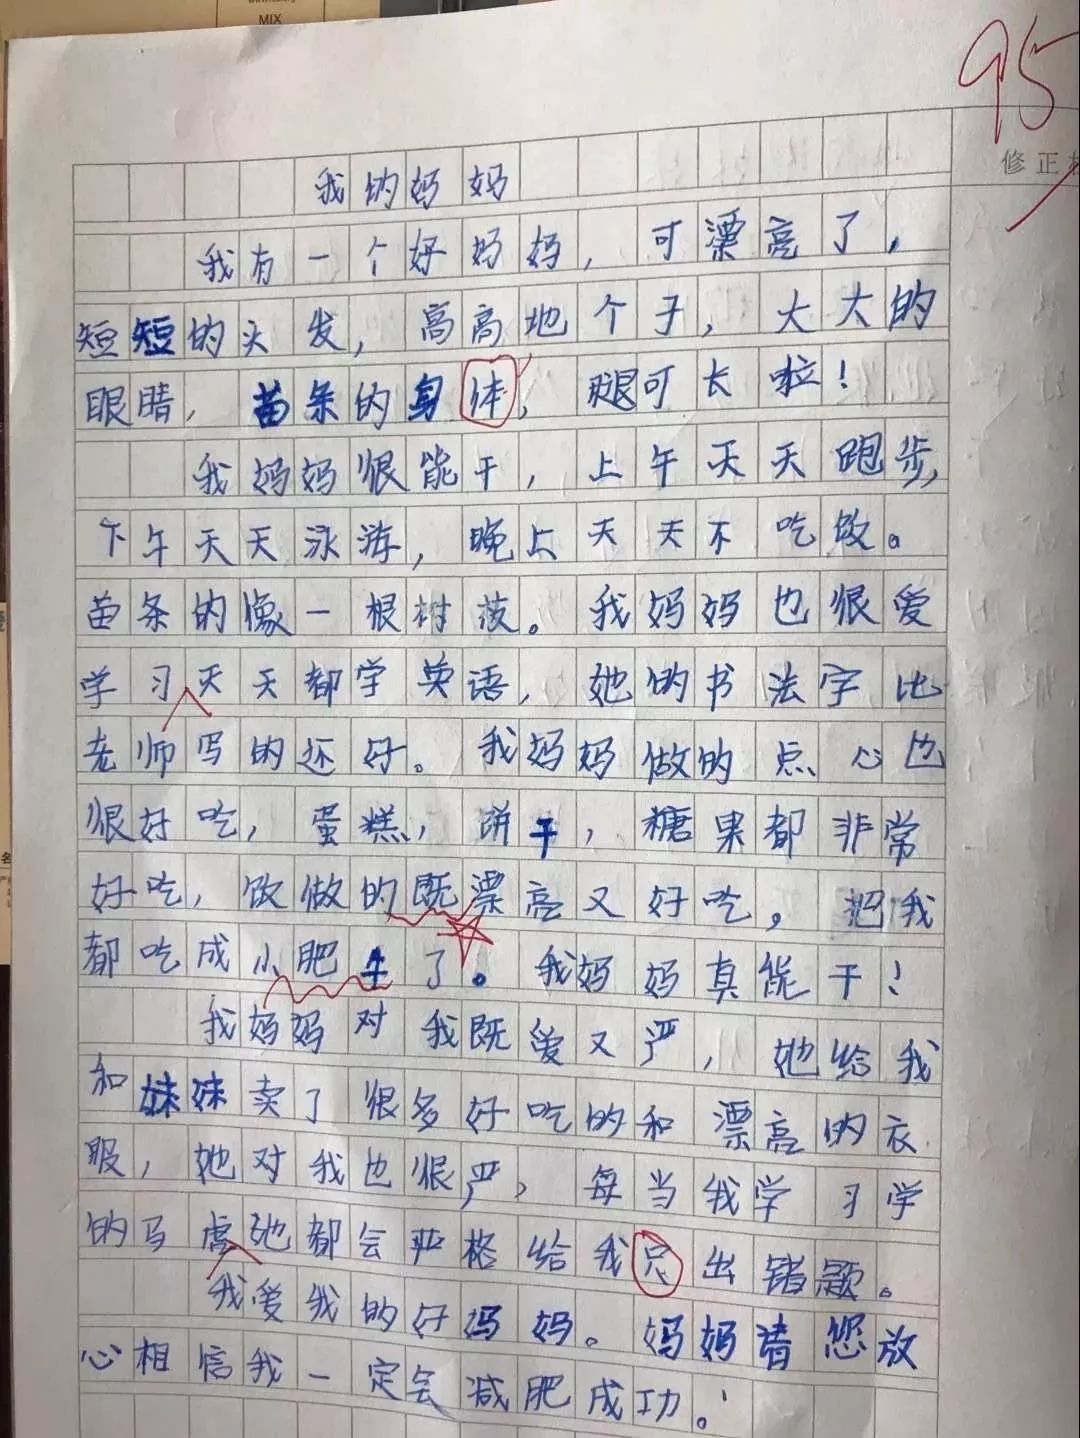 MIX
95
修正
我的妈妈
我有一个好妈妈，可漂亮了，
短短的头发，高高地个子，大大的
眼睛，苗条的身体，腿可长啦！
我妈妈很能干，上午天天跑步，
下午天天泳游，晚上天天不吃饭。
苗条的像一根树枝。我妈妈也很爱
学习天天都学英语，她的书法字比
老师写的还好。我妈妈做的点心也
很好吃，蛋糕，饼干，糖果都非常
好吃，饭做的既漂亮又好吃，把我
都吃成小肥牛了。我妈妈真能干！
我妈妈对我既爱又严，她给我
和妹妹卖了很多好吃的和漂亮的衣
服，她对我也很严，每当我学习学
的马虎她都会严格给我只出错题。
我爱我的好妈妈。妈妈请您放
心相信我一定会减肥成功。